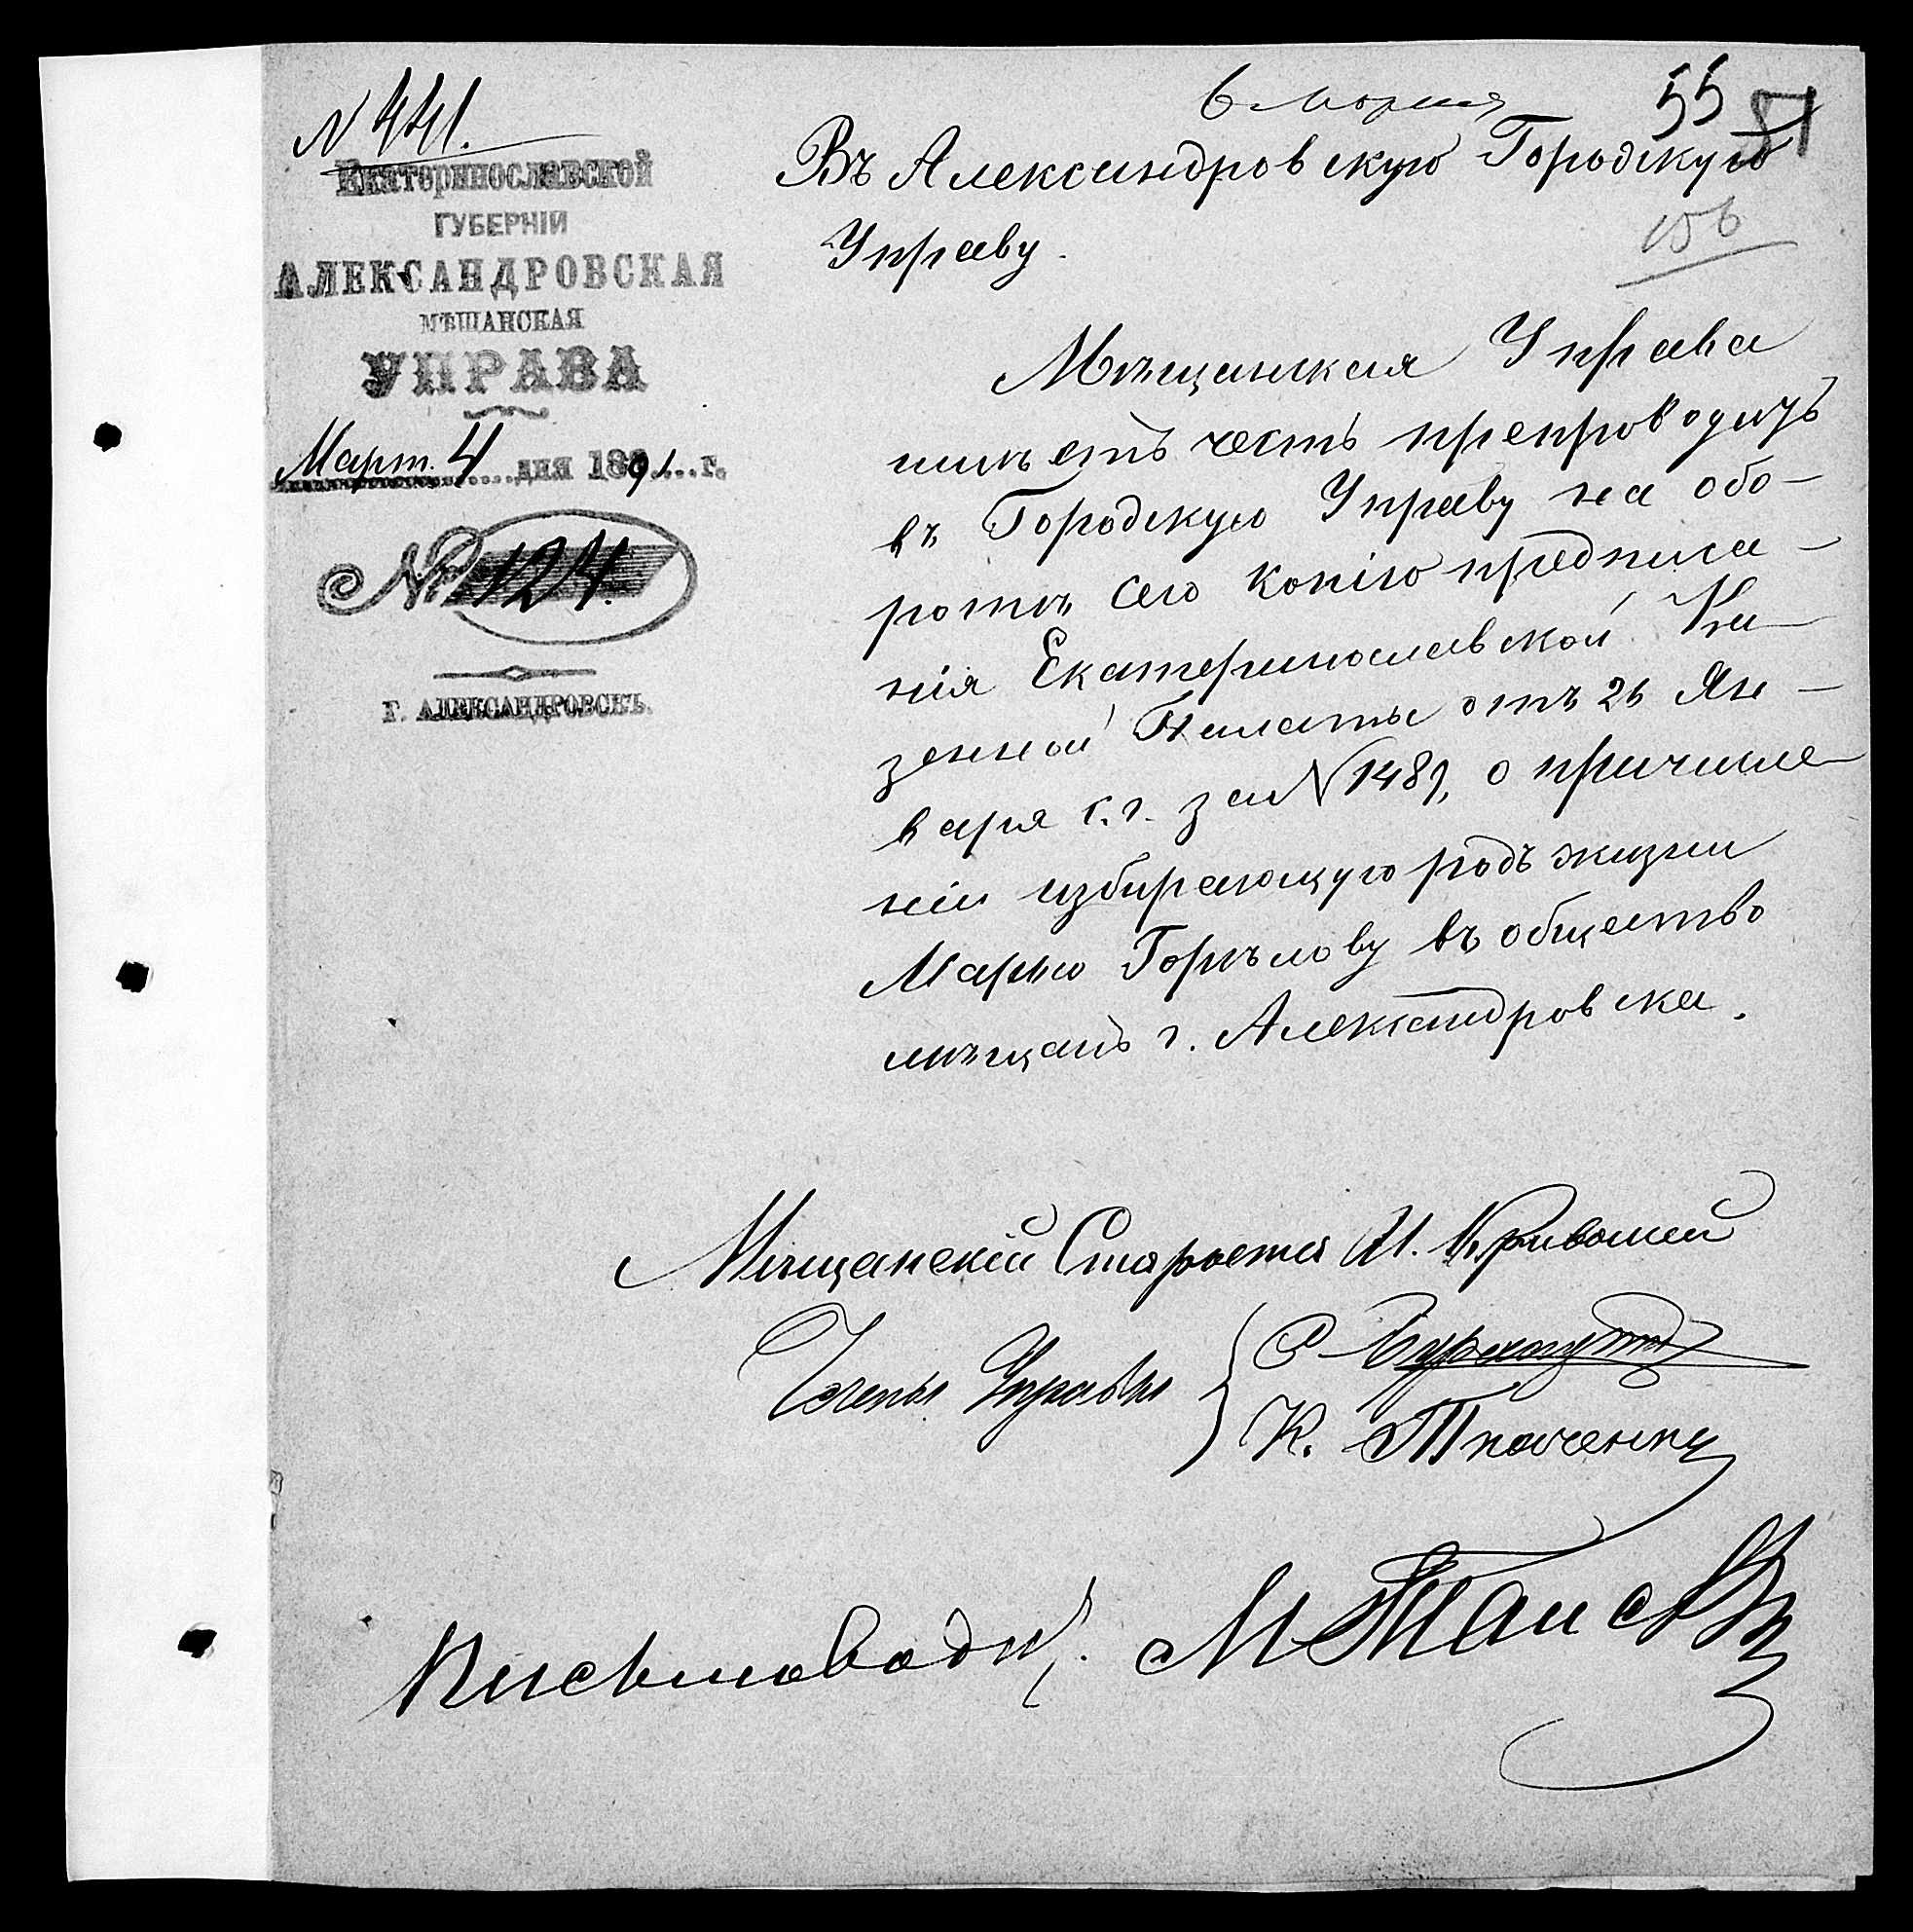 N 441.
6 Марта
55
51
156
Екатеринославской
ГУБЕРНІИ
АЛЕКСАНДРОВСКАЯ
МѢЩАНСКАЯ
УПРАВА
Март. 4 дня 1891 г.
№ 124.
Г. АЛЕКСАНДРОВСКЪ.
Въ Александровскую Городскую
Управу.
Мѣщанская Управа
имѣетъ честь препроводить
въ Городскую Управу на обо-
ротѣ сего копію предписа-
нія Екатеринославской Ка-
зенной Палаты отъ 26 Ян-
варя с.г. за N 1489, о причисле-
ніи избирающую родъ жизни
Марію Горѣлову въ общество
мѣщанъ г. Александровска.
Мѣщанскій Староста И. Кривошей
Члены Управы
С.
К. Ткаченко
Письмовод.
М